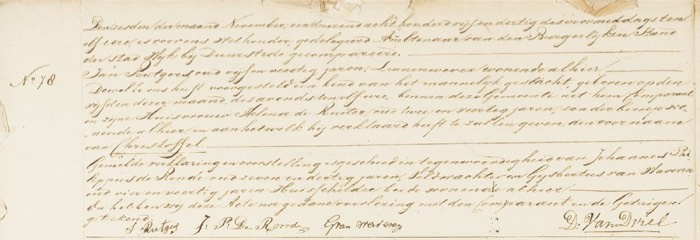 Den sesden der maand November, een duizend acht honderd vijf en dertig des voormiddags ten
elf ure, is voor ons Wethouder, gedelegeerd Ambtenaar van den Burgerlijken Stand
der stad Wijk bij Duurstede gecompareerd.
No 78
Jan Rutgers oud vijf en veertig jaren, Linnenwever wonende alhier
Dewelke ons heeft voorgesteld een kind van het mannelijk geslacht, geboren op den
vijfden dezer maand, des avonds ten elf ure, binnen deze Gemeente uit hem Comparant
en zijne Huisvrouw Helena de Ruiter, oud twee en veertig jaren, zonder beroep wo-
nende alhier, en aan hetwelk hij verklaard heeft te zullen geven, den voornaam
van Christoffel.
Gemelde verklaring en voorstelling is geschied in tegenwoordigheid van Johannes Phi
lippus de Ronde oud zeven en dertig jaren, Veldwachter en Gysbertus van
oud vier en veertig jaren Huisschilder beide wonende alhier
En hebben wij deze Acte na gedane voorlezing met den Comparant en de Getuigen
geteekend.
J Rutgers J. P. De Ronde G van D. Van Driel